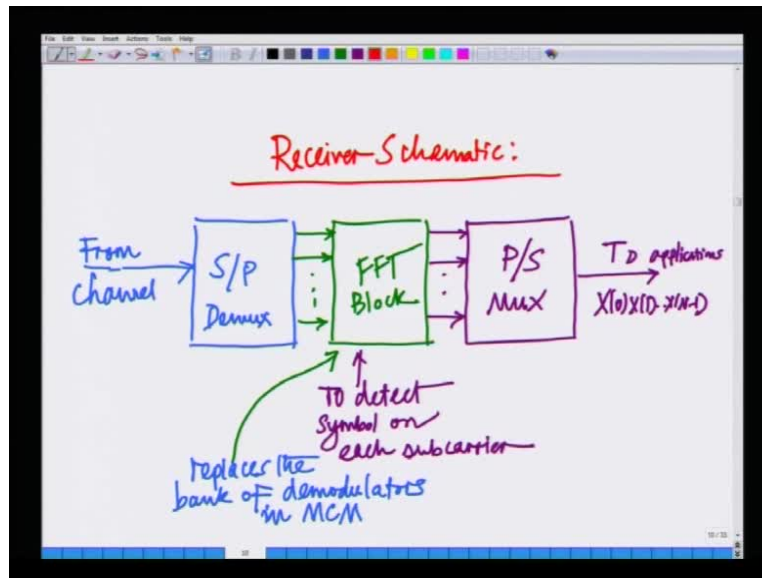 File Edit View Insert Actions Tools Help
Receiver Schematic:
From
channel
S/P
Demux
FFT
Block
P/S
Mux
To applications
X(0)X(1)..X(N-1)
To detect
symbol on
each subcarrier
replaces the
bank of demodulators
in MCM